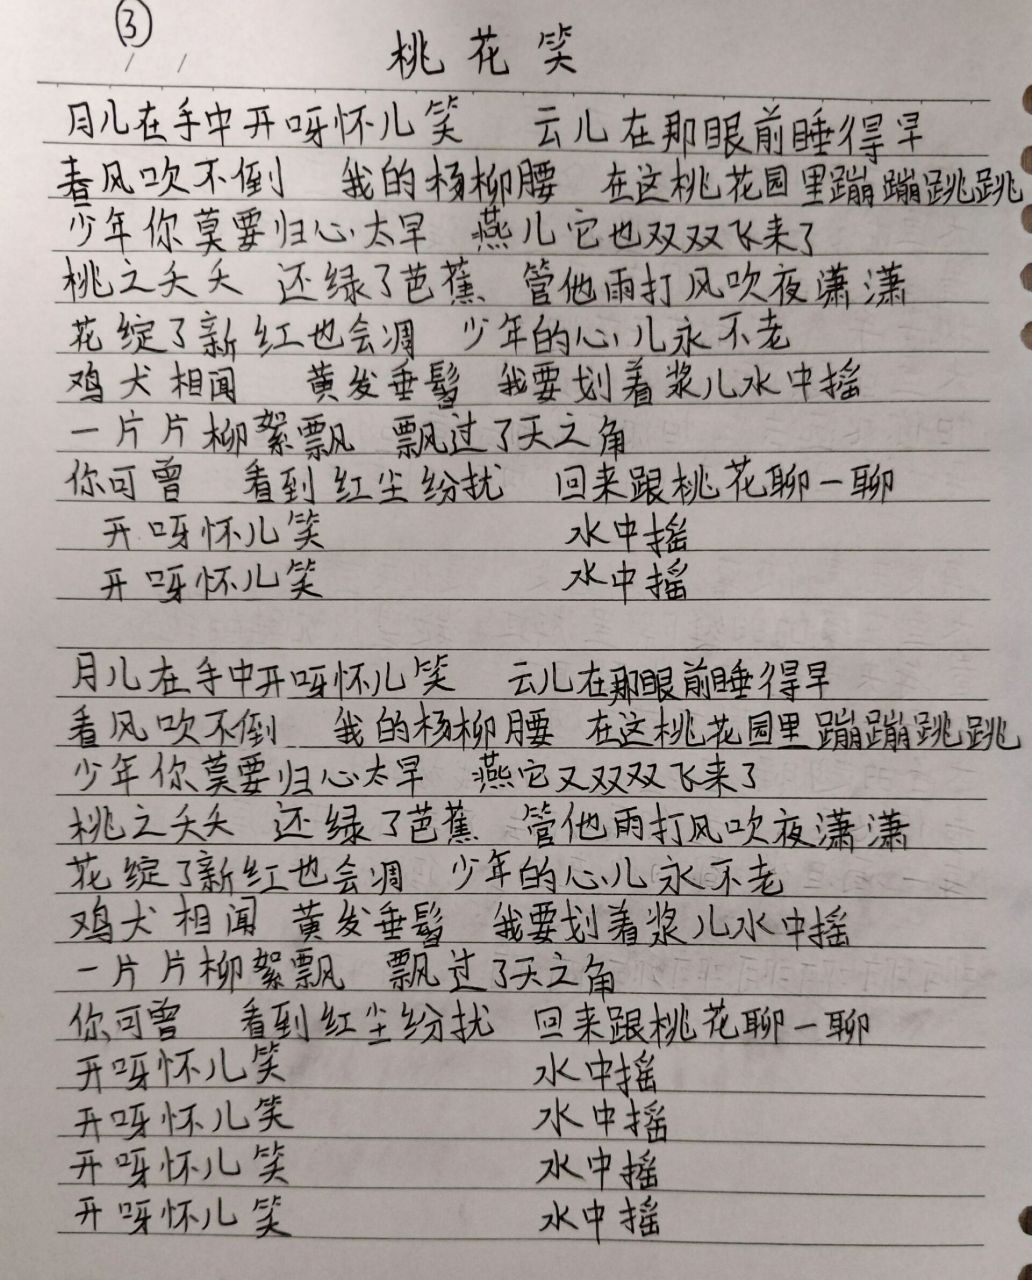 ③
桃花笑
月儿在手中开呀怀儿笑 云儿在那眼前睡得早
春风吹不倒 我的杨柳腰 在这桃花园里蹦蹦跳跳
少年你莫要归心太早 燕儿它也双双飞来了
桃之夭夭 还绿了芭蕉 管他雨打风吹夜潇潇
花绽了新红也会凋 少年的心儿永不老
鸡犬相闻 黄发垂髫 我要划着浆儿水中摇
一片片柳絮飘 飘过了天之角
你可曾 看到红尘纷扰 回来跟桃花聊一聊
开呀怀儿笑 水中摇
开呀怀儿笑 水中摇
月儿在手中开呀怀儿笑 云儿在那眼前睡得早
春风吹不倒 我的杨柳腰 在这桃花园里蹦蹦跳跳
少年你莫要归心太早 燕它又双双飞来了
桃之夭夭 还绿了芭蕉 管他雨打风吹夜潇潇
花绽了新红也会凋 少年的心儿永不老
鸡犬相闻 黄发垂髫 我要划着浆儿水中摇
一片片柳絮飘 飘过了天之角
你可曾 看到红尘纷扰 回来跟桃花聊一聊
开呀怀儿笑 水中摇
开呀怀儿笑 水中摇
开呀怀儿笑 水中摇
开呀怀儿笑 水中摇